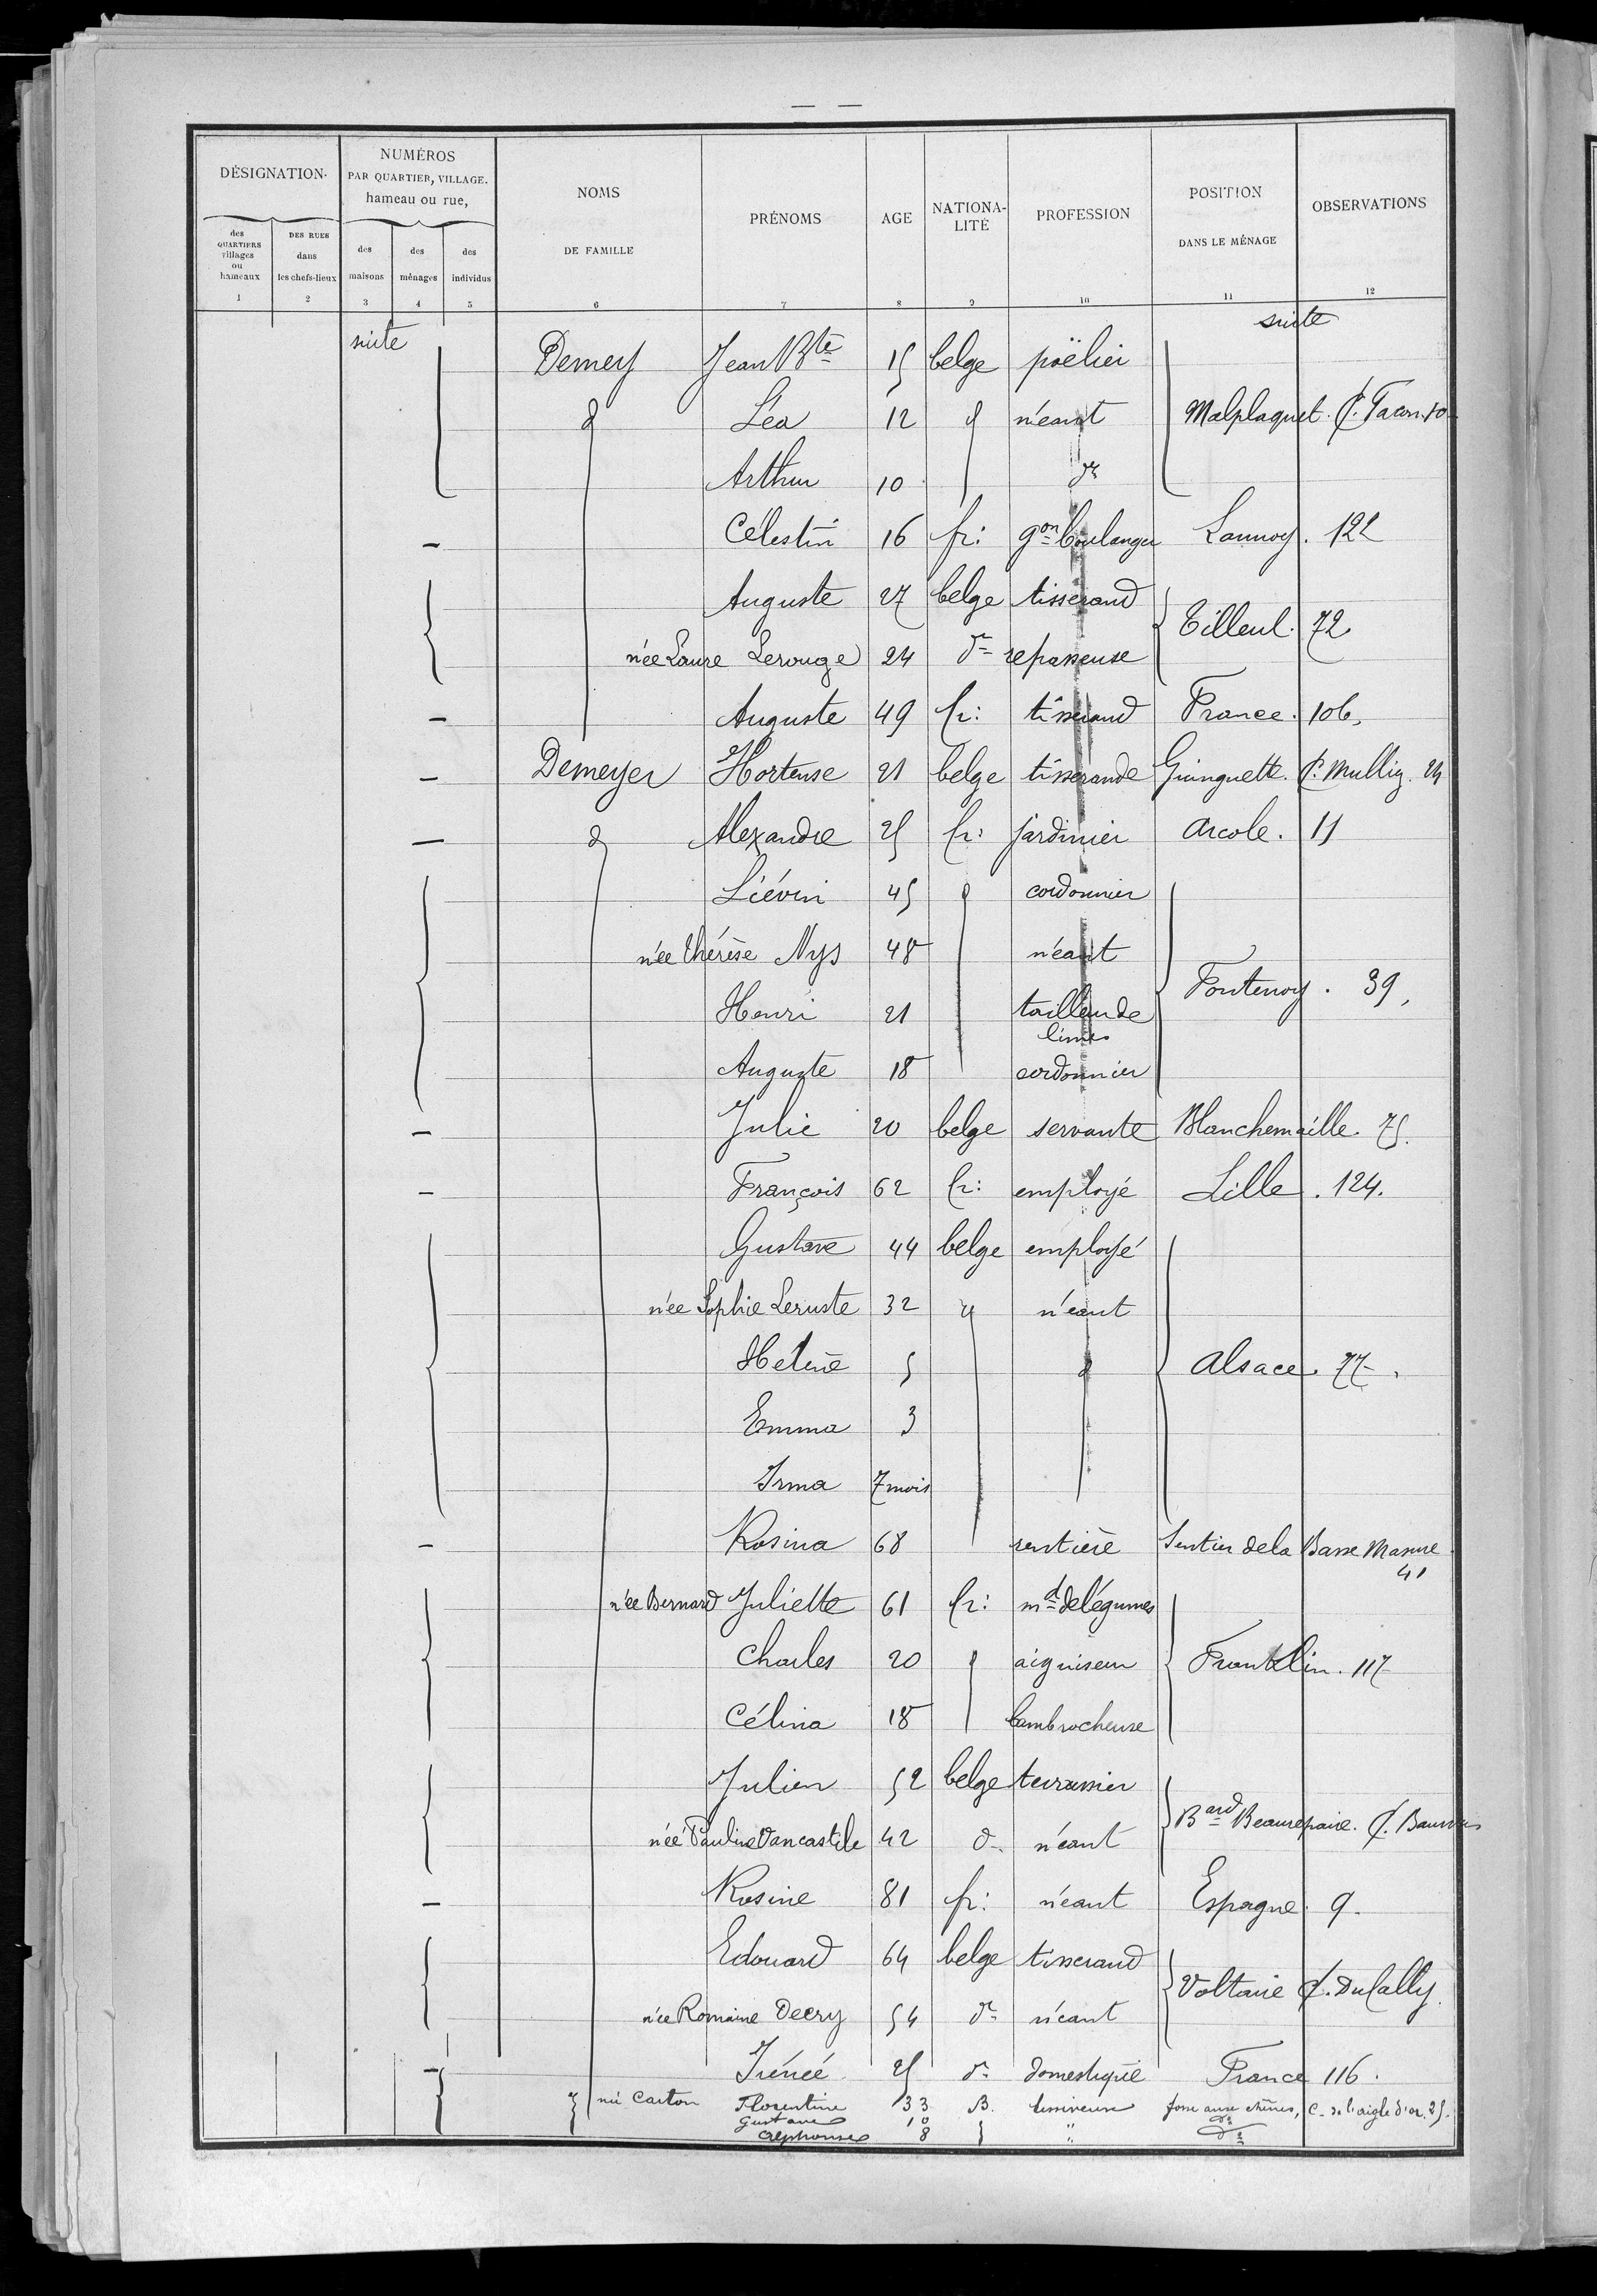 DÉSIGNATION.
NUMÉROS
PAR QUARTIER, VILLAGE.
hameau ou rue,
NOMS
DE FAMILLE
PRÉNOMS
AGE
NATIONA-
LITÉ
PROFESSION
POSITION
DANS LE MÉNAGE
OBSERVATIONS
des
QUARTIERS
villages
ou
hameaux
DES RUES
dans
les chefs-lieux
des
maisons
des
ménages
des
individus
1 2 3 4 5 6 7 8 9 10 11 12
suite suite
Demey Jean Bte 15 belge poëlier
d Léa 12 d néant Malplaquet. C. Facon. 10
Arthur 10 do
— Célestin 16 fr: gon boulanger Lannoy. 122
Auguste 27 belge tisserand
née Laure Lerouge 24 do repasseuse Tilleul. 72
— Auguste 49 fr: tisserand France. 106,
— Demeyer Hortense 21 belge tisserande Guinguette. C. Mulliez. 24
— d Alexandre 25 fr: jardinier Arcole. 11
Liévin 45 d cordonnier
née Thérèse Nys 48 néant
Henri 21 tailleur de Fontenoy. 39,
limes
Auguste 18 cordonnier
— Julie 20 belge servante Blanchemaille. 75.
— François 62 fr: employé Lille. 124.
Gustave 44 belge employé
née Sophie Leruste 32 d néant
Hélène 5 d Alsace. 77.
Emma 3
Irma 7 mois
— Rosina 68 rentière Sentier de la Basse Masure
41
née Bernard Juliette 61 fr: mde de légumes
Charles 20 d aiguiseur Franklin. 117
Célina 18 bambrocheuse
Julien 52 belge terrassier
née Pauline Vancastele 42 do néant Bard Beaurepaire. C.
— Rosine 81 fr: néant Espagne. 9.
Edouard 64 belge tisserand
née Romaine Decry 54 do néant Voltaire C. Dufally.
— Irénée 25 do domestique France 116.
née Carton Florentine 33 B. lessiveuse fosse aux chênes, C. de l'aigle d'or. 25.
Gustave 10 do
Alphonse 8 " do